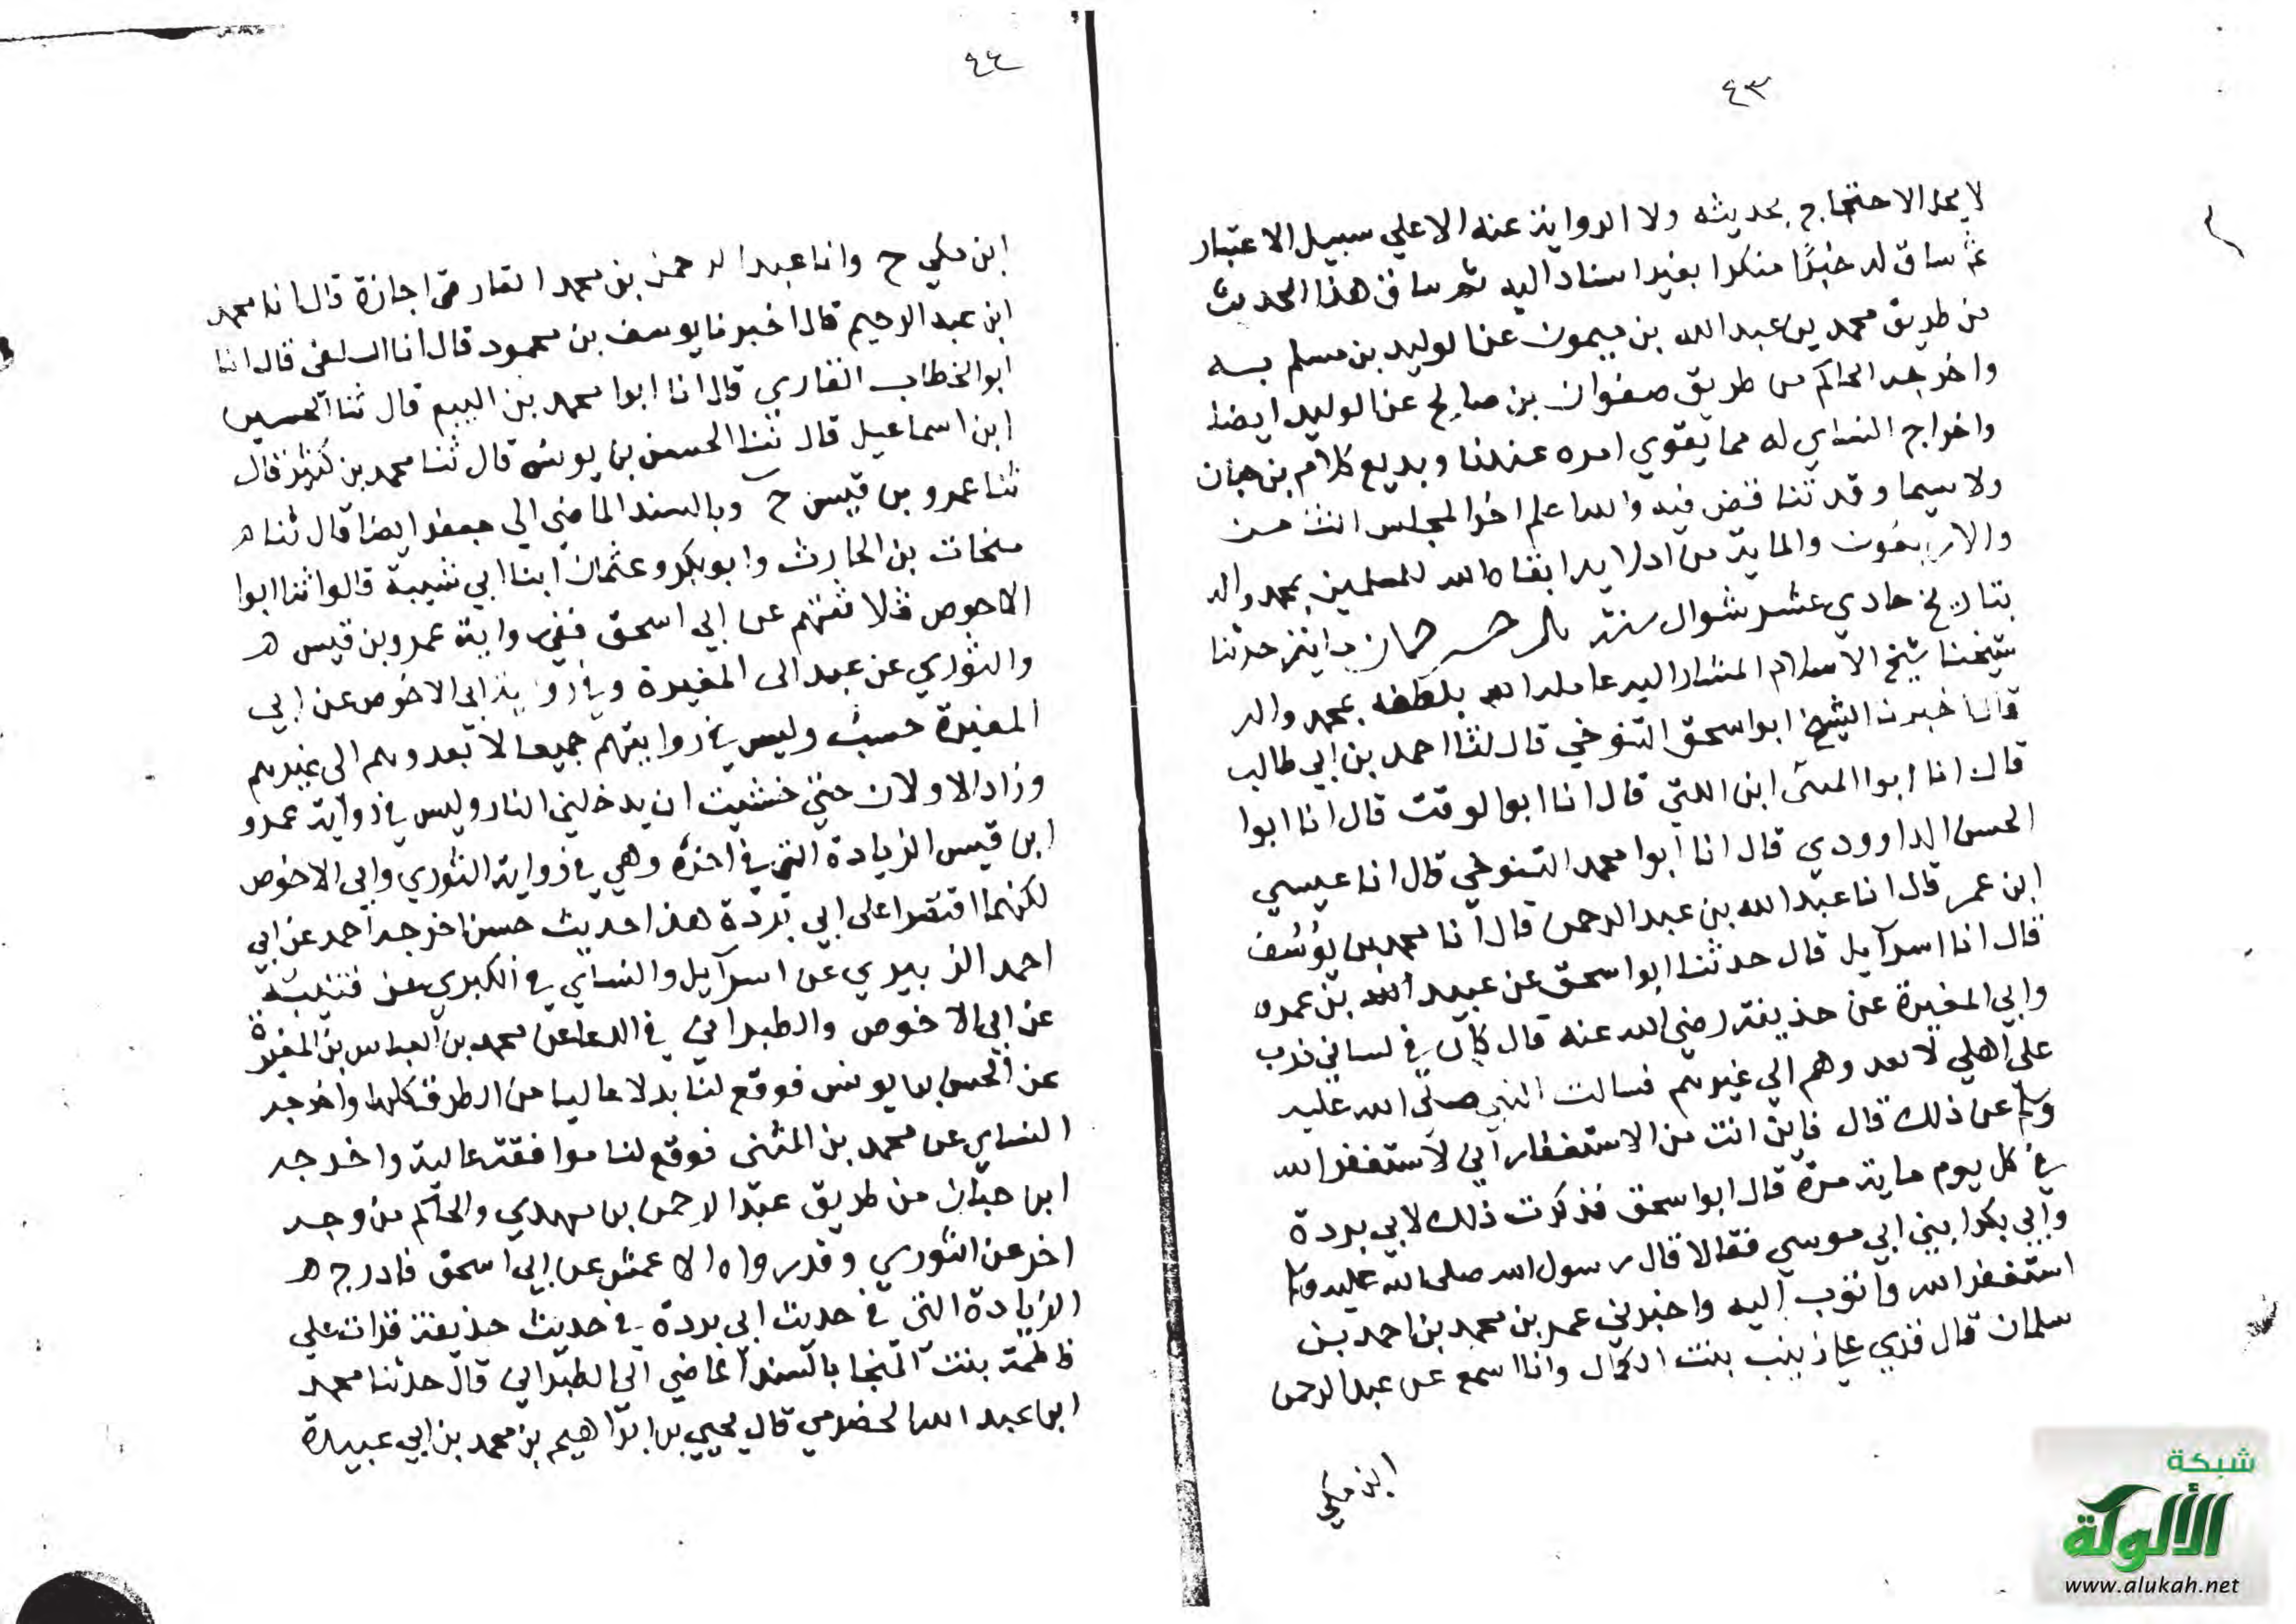 ٤٣
لا يحل الاحتجاج بحديثه ولا الرواية عنه الا علي سبيل الاعتبار
ثم ساق له خبرًا منكرا بغير اسناد اليه ثم ساق هذا الحديث
من طريق محمد بن عبد الله بن ميمون عن الوليد بن مسلم به
واخرجه الحاكم من طريق صفوان بن صالح عن الوليد ايضا
واخراج النساي له مما يقوي امره عندنا وبديع كلام بن حبان
ولا سيما وقد تناقض فيه والله اعلم اخر المجلس الثامن
والاربعون والماية من املايه ابقاه الله للمسلمين بمحمد واله
بتاريخ حادي عشر شوال سنة حدثنا
شيخنا شيخ الاسلام المشار اليه عامله الله بلطفه بمحمد واله
قال اخبرنا الشيخ ابو اسحق التنوخي قال ثنا احمد بن ابي طالب
قال انا ابوا المنى ابن اللتي قال انا ابوا لوقت قال انا ابوا
الحسن الداوودي قال انا ابوا محمد التنوخي قال انا عيسي
ابن عمر قال انا عبد الله بن عبد الرحمن قال انا محمد بن يوسف
قال انا اسرآيل قال حدثنا ابوا سحق عن عبيد الله بن عمره
وابي المغيرة عن حذيفة رضي الله عنه قال كان في لساني ذرب
علي اهلي لا يعدوهم الي غيرهم فسالت النبي صلى الله عليه
وسلم عن ذلك قال فاين انت من الاستغفار اني لاستغفر الله
في كل يوم ماية مرة قال ابوا سحق فذكرت ذلك لابي بردة
وابي بكر ابني ابي موسي فقالا قال رسول الله صلى الله عليه وسلم
استغفر الله واتوب اليه واخبرني عمر بن محمد بن احمد بن
سلمان قال قري علي زينب بنت الكمال وانا اسمع عن عبد الرحمن
ابن مكي
٤٤
ابن مكي ح وانا عبد الرحمن بن محمد الفارقي اجازة قال انا محمد
ابن عبد الرحيم قال اخبرنا يوسف بن محمود قال انا السلفي قال انا
ابو الخطاب القاري قال انا ابوا محمد بن البيع قال ثنا الحسين
ابن اسماعيل قال ثنا الحسن بن يونس قال ثنا محمد بن كثير قال
ثنا عمرو بن قيس ح وبالسند الماضي الي جعفر ايضا قال ثنا هـ
منجاب بن الحارث وابو بكر وعثمان ابنا ابي شيبة قالوا ثنا ابوا
الاحوص ثلاثتهم عن ابي اسحق ففي رواية عمرو بن قيس هـ
والثوري عن عبيد الى المغيرة وفي رواية ابي الاحوص عن ابي
المغيرة حسب وليس في روايتهم جميعا لا تعدوهم الى غيرهم
وزاد الاولان حتى خشيت ان يدخلني النار وليس في رواية عمرو
ابن قيس الزيادة التي في اخره وهي في رواية الثوري وابي الاحوص
لكنهما اقتصرا على ابي بردة هذا حديث حسن اخرجه احمد عن ابي
احمد الزبيري عن اسرآيل والنساي في الكبري عن قتيبة
عن ابي الاحوص والطبراني في الدعا عن محمد بن العباس بن المغيرة
عن الحسن بن يونس فوقع لنا بدلا عاليا من الطرق كلها واخرجه
النساي عن محمد بن المثنى فوقع لنا موافقة عالية واخرجه
ابن حبان من طريق عبد الرحمن بن مهدي والحاكم من وجه
اخر عن الثوري وقد رواه الاعمش عن ابي اسحق فادرج هـ
الزيادة التي في حديث ابي بردة في حديث حذيفة قرات علي
فاطمة بنت المنجا بالسند الماضي الي الطبراني قال حدثنا محمد
ابن عبد الله الحضرمي قال يحيي بن ابراهيم بن محمد بن ابي عبيدة
شبكة
الألوكة
www.alukah.net